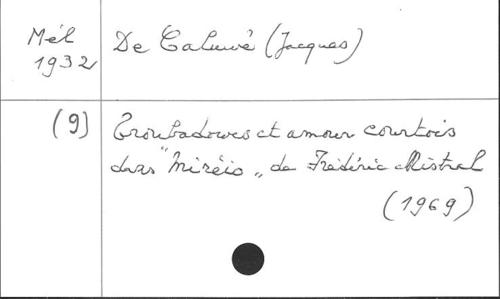 Mél
1932
De Caluwé (Jacques)
(9)
Troubadours et amour courtois
dans "Mirèio„ de Frédéric Mistral
(1969)